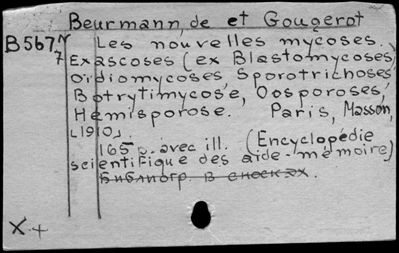 Beurmann, de et Gougerot
B567 N Les nouvelles mycoses.
7 Exascoses (ex Blastomycoses)
oïdiomycoses Sporotrichoses,
Botrytimycose, Oosporoses,
Hémisporose. Paris, Masson,
[1910].
165 p. avec ill. (Encyclopédie
scientifique des aide-mémoire)
Библиогр. в сносках.
X +